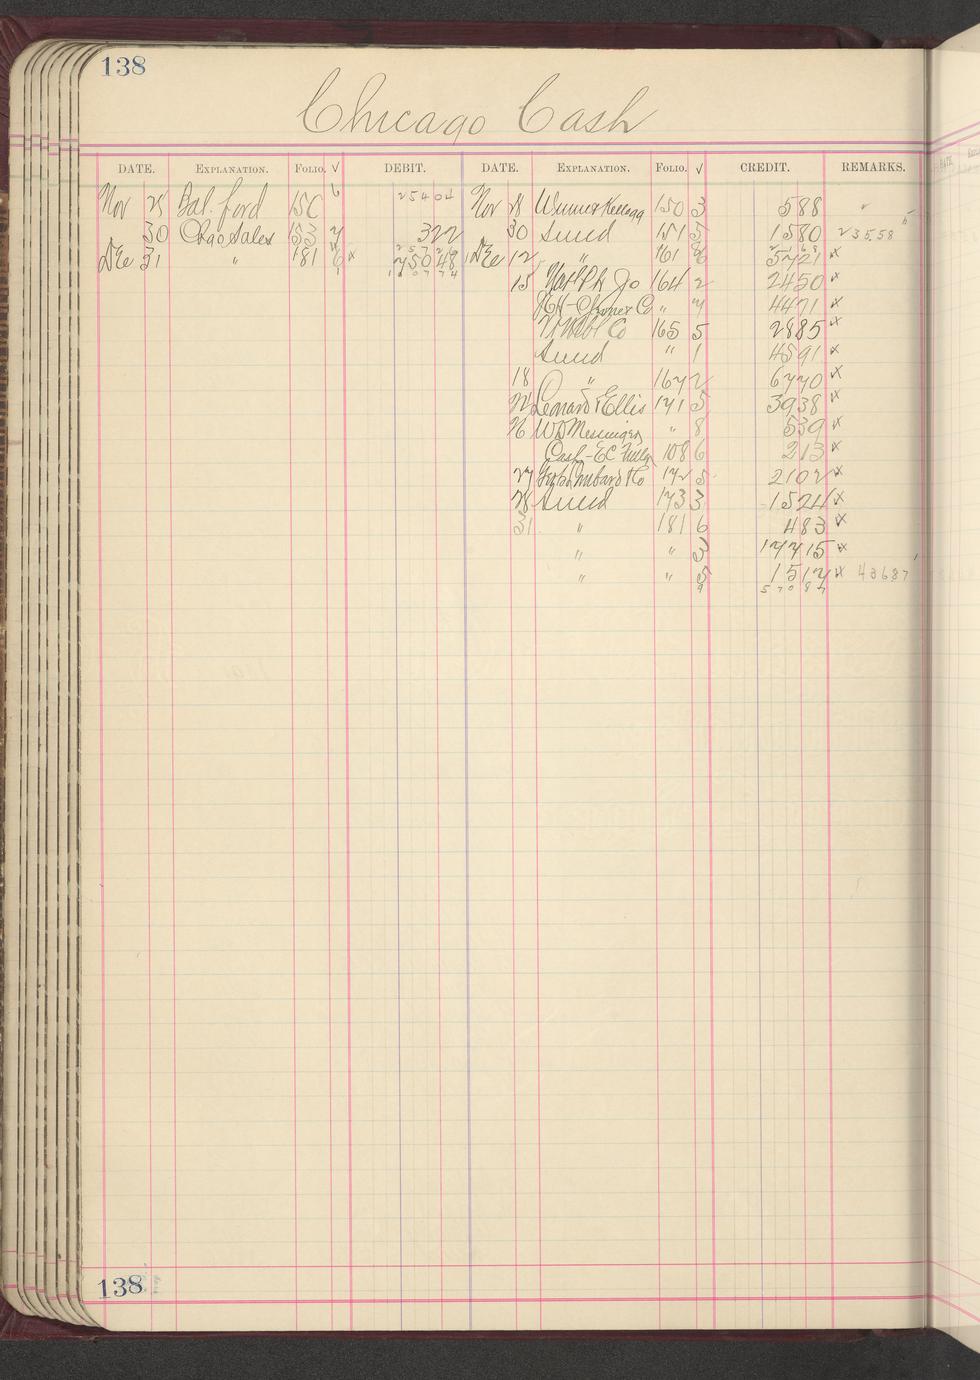 138
Chicago Cash
DATE. EXPLANATION. FOLIO. √ DEBIT. DATE. EXPLANATION. FOLIO. √ CREDIT. REMARKS.
Nov 25 Bal. ford 150 6 25404 Nov 28 150 3 588
30 Chgo Sales 153 7 322 30 Sund 151 5 1580 23558
Dec 31 " 181 6 x 75048 Dec 12 " 161 5721 x
15 Natl Ph Jo 164 2 2450 x
" 7 4471 x
165 5 2885 x
Sund " 1 4591 x
18 " 167 2 6770 x
24 Lenard & Ellis 171 5 3938 x
26 W D Messinger " 8 539 x
Cash - EC 108 6 213 x
27 172 5 2102 x
28 Sund 173 3 1524 x
31 " 181 6 483 x
" " 3 17715 x
" " 5 1517 x 43687
9 57087
138